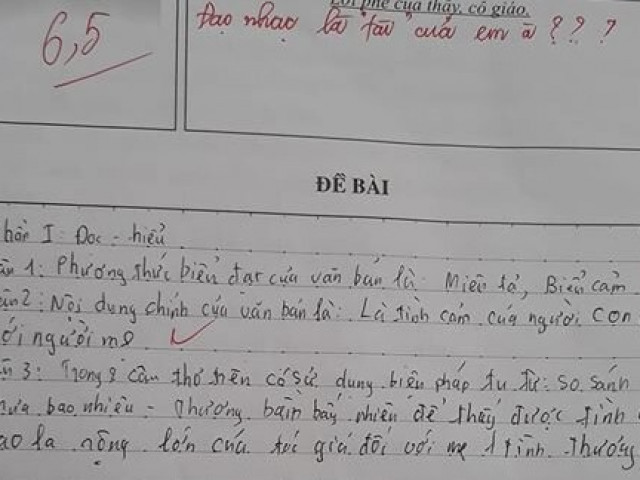 Lời phê của thầy, cô giáo.
6,5
Đạo nhạc là "tài" của em à ? ? ?
ĐỀ BÀI
I: Đọc - hiểu
1: Phương thức biểu đạt của văn bản là: Miêu tả, Biểu cảm
2: Nội dung chính của văn bản là: Là tình cảm của người con
người mẹ
3: Trong câu thơ trên có sử dụng biện pháp tu từ: so sánh
bao nhiêu - Thương bầm bấy nhiêu để thấy được tình
la rộng lớn của tác giả đối với mẹ 1 tình thương